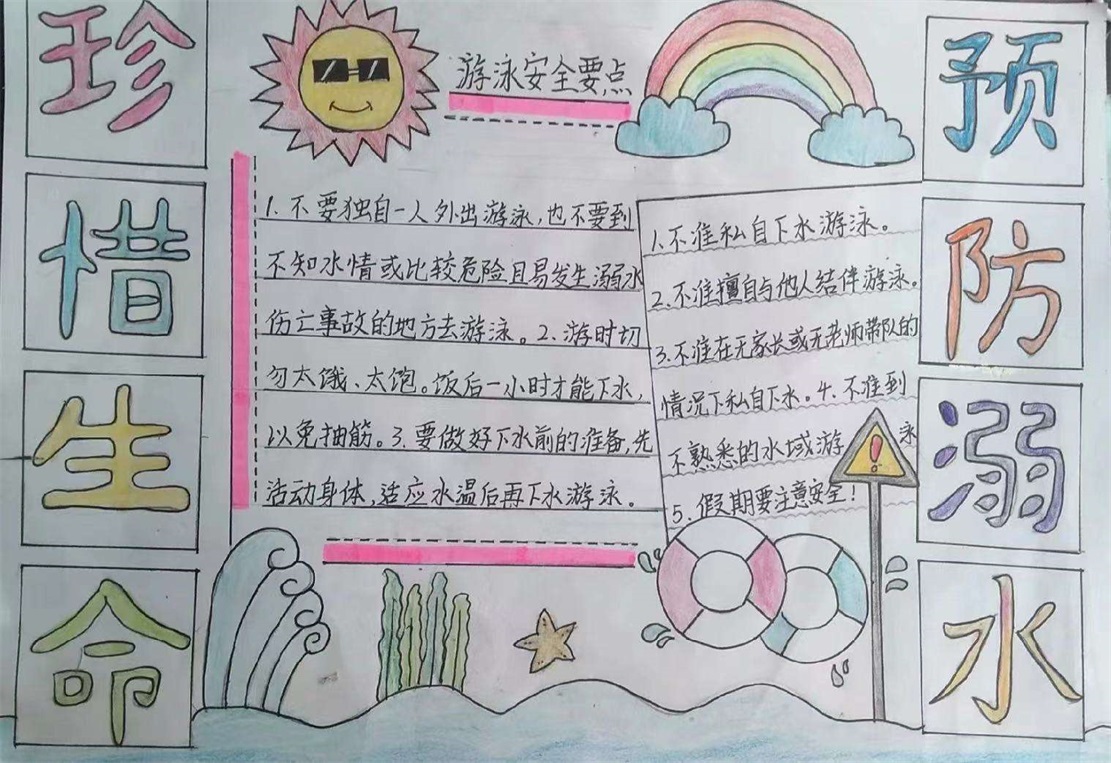 珍
惜
生
命
游泳安全要点
1.不要独自一人外出游泳,也不要到
不知水情或比较危险且易发生溺水
伤亡事故的地方去游泳。2.游时切
勿太饿、太饱。饭后一小时才能下水,
以免抽筋。3.要做好下水前的准备,先
活动身体,适应水温后再下水游泳。
1.不准私自下水游泳。
2.不准擅自与他人结伴游泳。
3.不准在无家长或无老师带队的
情况下私自下水。4.不准到
不熟悉的水域游泳
5.假期要注意安全!
预
防
溺
水